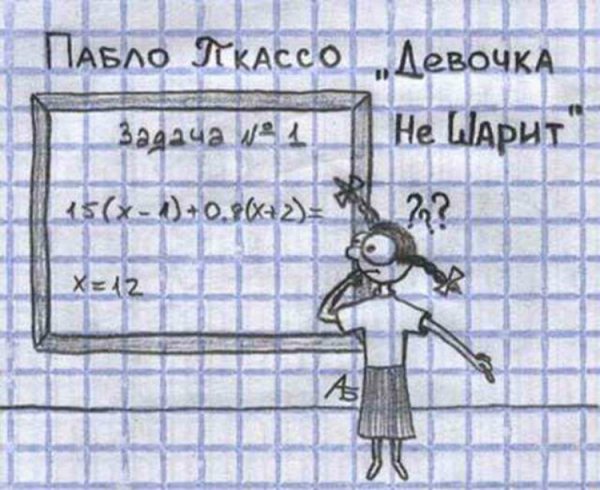 Пабло Пкассо „Девочка
Не Шарит"
Задача № 1
15(x-1)+0,8(x+2)=
x=12
???
АБ